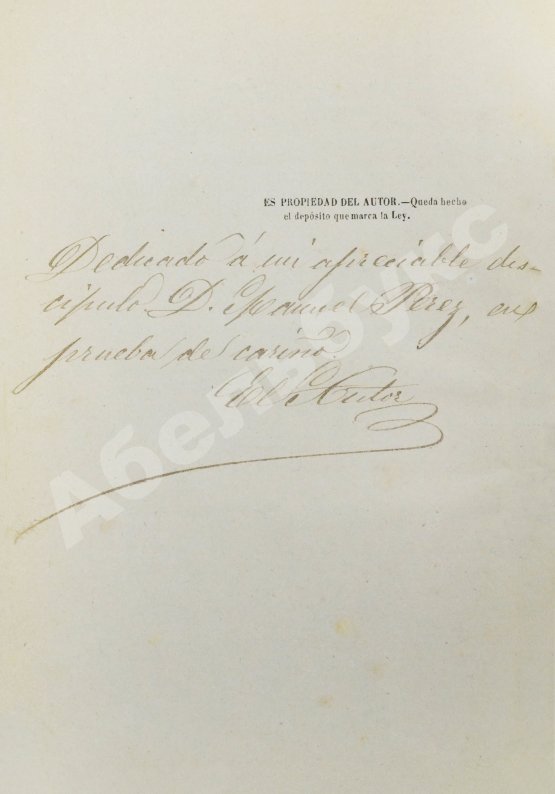 ES PROPIEDAD DEL AUTOR.—Queda hecho
el depósito que marca la Ley.
Dedicado á mi apreciable dis-
cipulo D. Manuel Perez, en
prueba de cariño
El Autor
Абельбукс